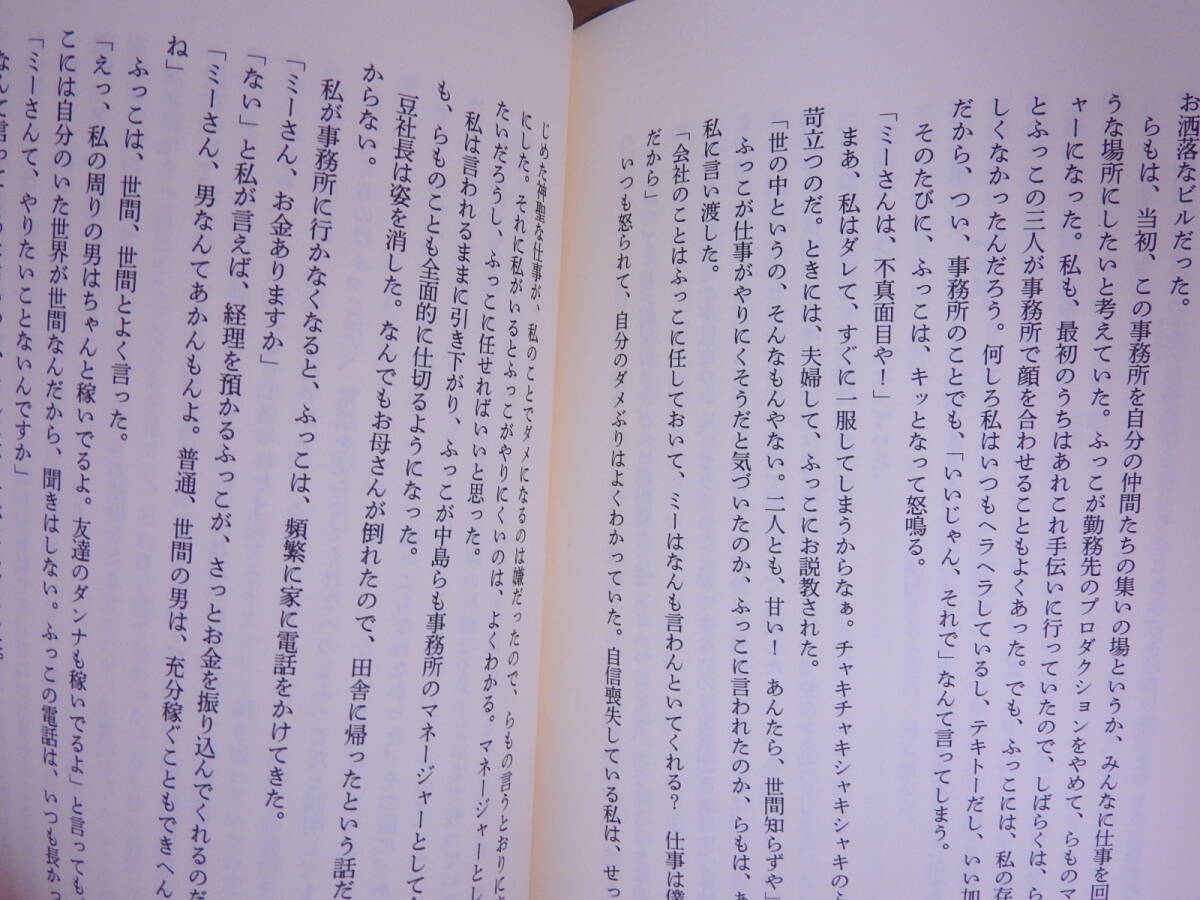 お洒落なビルだった。
らもは、当初、この事務所を自分の仲間たちの集いの場というか、みんなに仕事を回
うな場所にしたいと考えていた。ふっこが勤務先のプロダクションをやめて、らものマ
ャーになった。私も、最初のうちはあれこれ手伝いに行っていたので、しばらくは、ら
とふっこの三人が事務所で顔を合わせることもよくあった。でも、ふっこには、私の存
しくなかったんだろう。何しろ私はいつもヘラヘラしているし、テキトーだし、いい加
だから、つい、事務所のことでも、「いいじゃん、それで」なんて言ってしまう。
そのたびに、ふっこは、キッとなって怒鳴る。
「ミーさんは、不真面目や！」
まあ、私はダレて、すぐに一服してしまうからなぁ。チャキチャキシャキシャキのら
苛立つのだ。ときには、夫婦して、ふっこにお説教された。
「世の中というの、そんなもんやない。二人とも、甘い！　あんたら、世間知らずや」
ふっこが仕事がやりにくそうだと気づいたのか、ふっこに言われたのか、らもは、あ
私に言い渡した。
「会社のことはふっこに任しておいて、ミーはなんも言わんといてくれる？　仕事は僕
だから」
いつも怒られて、自分のダメぶりはよくわかっていた。自信喪失している私は、せっ
じめた神聖な仕事が、私のことでダメになるのは嫌だったので、らもの言うとおりに
にした。それに私がいるとふっこがやりにくいのは、よくわかる。マネージャーとし
たいだろうし、ふっこに任せればいいと思った。
私は言われるままに引き下がり、ふっこが中島らも事務所のマネージャーとして
も、らものことも全面的に仕切るようになった。
豆社長は姿を消した。なんでもお母さんが倒れたので、田舎に帰ったという話だ
からない。
私が事務所に行かなくなると、ふっこは、頻繁に家に電話をかけてきた。
「ミーさん、お金ありますか」
「ない」と私が言えば、経理を預かるふっこが、さっとお金を振り込んでくれるのだ
「ミーさん、男なんてあかんもんよ。普通、世間の男は、充分稼ぐこともできへん
ね」
ふっこは、世間、世間とよく言った。
「えっ、私の周りの男はちゃんと稼いでるよ。友達のダンナも稼いでるよ」と言っても
こには自分のいた世界が世間なんだから、聞きはしない。ふっこの電話は、いつも長かっ
「ミーさんて、やりたいことないんですか」